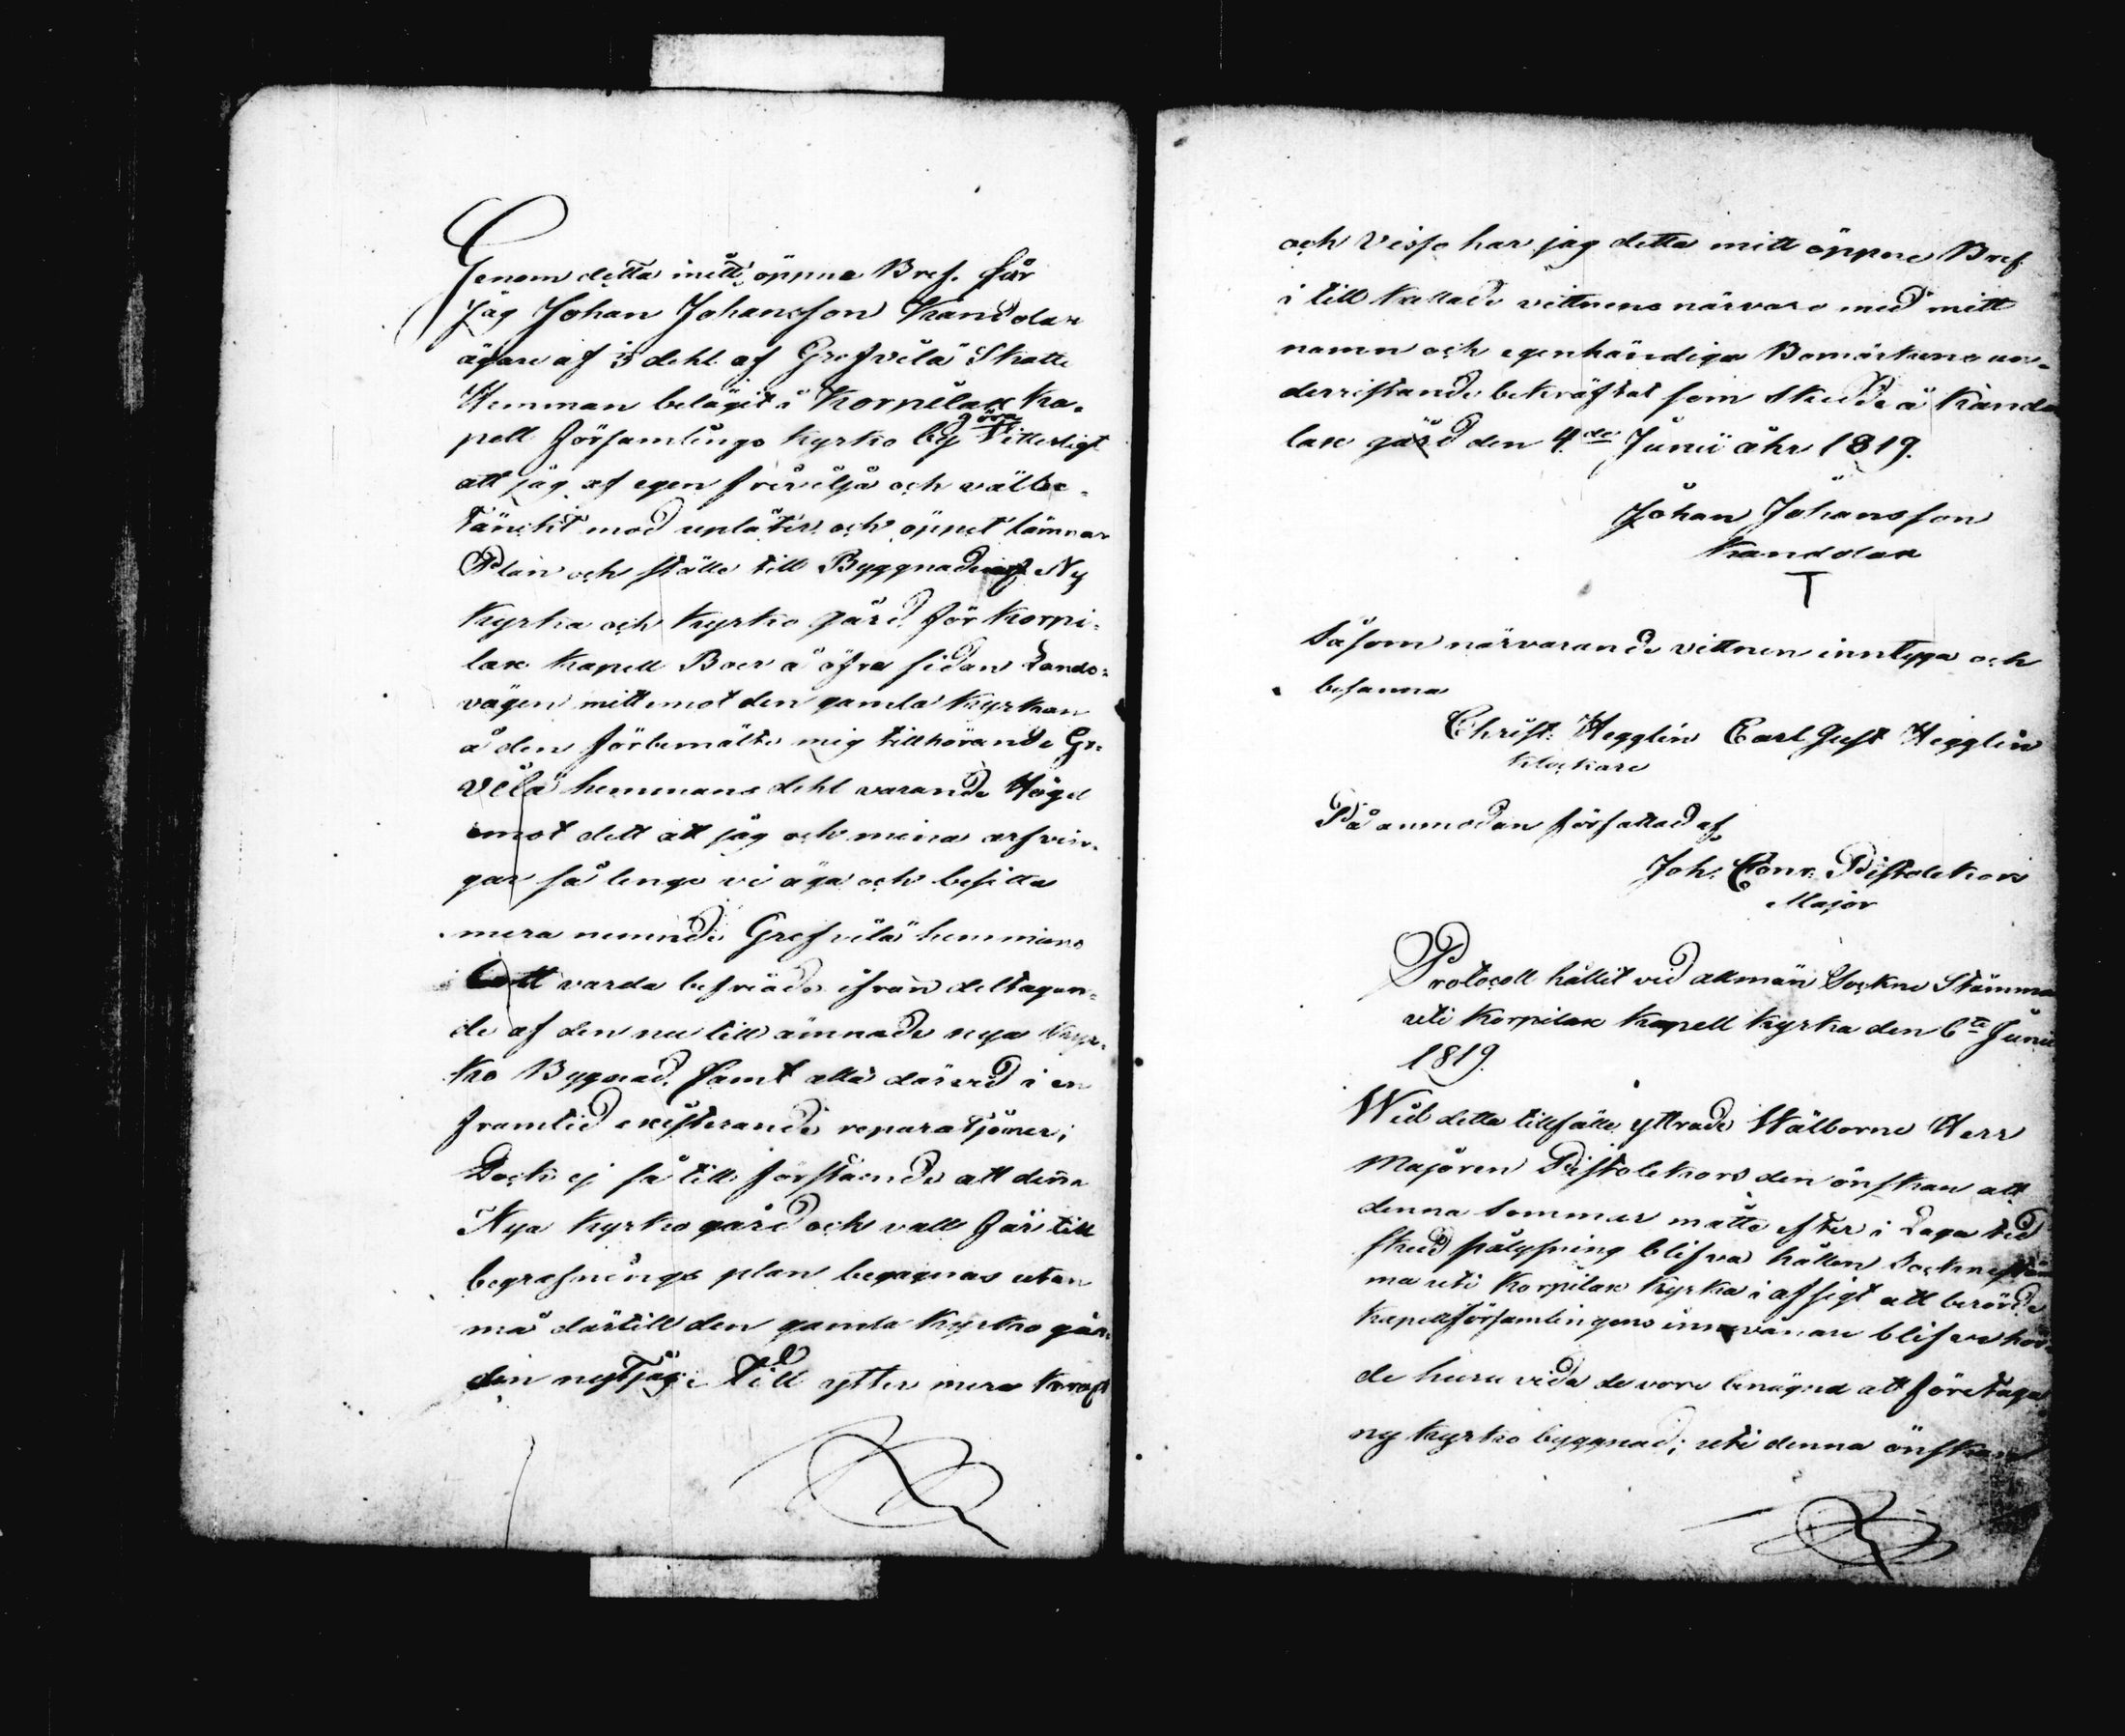 Genom detta mitt öppna Bref. får
Jag Johan Johansson Kandolax
ägare af dehl af Grefvilä Skatte
Hemman belägit i Korpilax Ka-
pell församlings Kyrko by göra Vitterligt
att jag af egen frivilja och välbe-
tänckt mod uplåter och öppet lämnar
Plan och ställe till Byggnad af Ny
Kyrka och Kyrko gård för Korpi-
lax Kapell Boer å öfra sidan Lands-
vägen mittemot den gamla Kyrkan
å den förbemälte mig tillhörande Gr-
vilä hemmans dehl varande Höger
emot dett att jag och mina arfvin-
gar så lenge vi äga och besitta
mera nemnde Grefvilä hemmans
lott varda befriade ifrån deltagan-
de af den nu till ämnade nya Kyr-
ko Byggnad. Samt alla därvid i en
framtid existerande reparatjoner;
Dock ej så till förståendes att denna
Nya Kyrko gård och vall får till
begrafnings plan begagnas utan
må därtill den gamla Kyrko går-
den nytjas; Till ytter mera Kraft
och Visso har jag detta mitt öppne Bref
i till kallade vittnens närvaro med mitt
namn och egenhändiga Bomärkens un-
derristande bekräftat som skedde å Kando
lax gård den 4.de Junii åhr 1819.
Johan Johansson
Kandolax
T
Såsom närvarande vittnen inntyga och
besanna
Christ: Hegglin Carl Gust Hegglin
Klockare
På anmodan författad af
Joh. Conr. Pistolekors
Major
Protocoll hållit vid allmän Sockne Stämma
uti Korpilax Kapell Kyrka den 6te Junii
1819.
Wid detta tillfälle yttrade Wälborne Herr
Majoren Pistolekors den önskan att
denna Sommar måtte efter i Laga tid
skedd pålysning blifva hållen Sockne stäm
ma uti Korpilax Kyrka i afsigt att berörde
Kapellförsamlingens innevånare blifva hör-
de huru vida de vore benägna att företaga
ny Kyrko byggnad; uti denna önskan